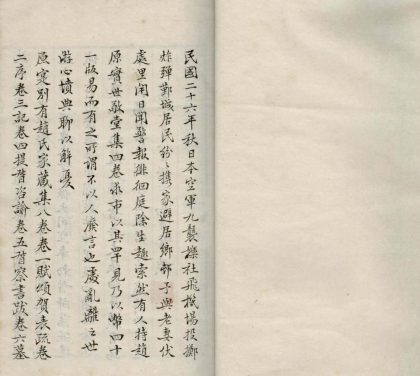 民國二十六年秋日本空軍九襲櫟社飛機場投擲
炸彈鄞城居民紛〻攜家避居鄉邨予與老妻伏
處里閈日聞警報徘徊庭除生趣索然有人持趙
原實世敬堂集四卷求市以其罕見乃以幣四十
一版易而有之所謂不以人廢言也處亂離之世
游心墳典聊以解憂
原寔別有趙氏家藏集八卷卷一賦頌賀表疏卷
二序卷三記卷四提督咨諭卷五督察書跋卷六墓